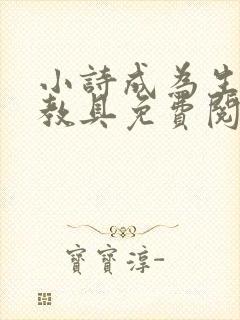 小詩成為生
教具免費閱
寶寶淳-